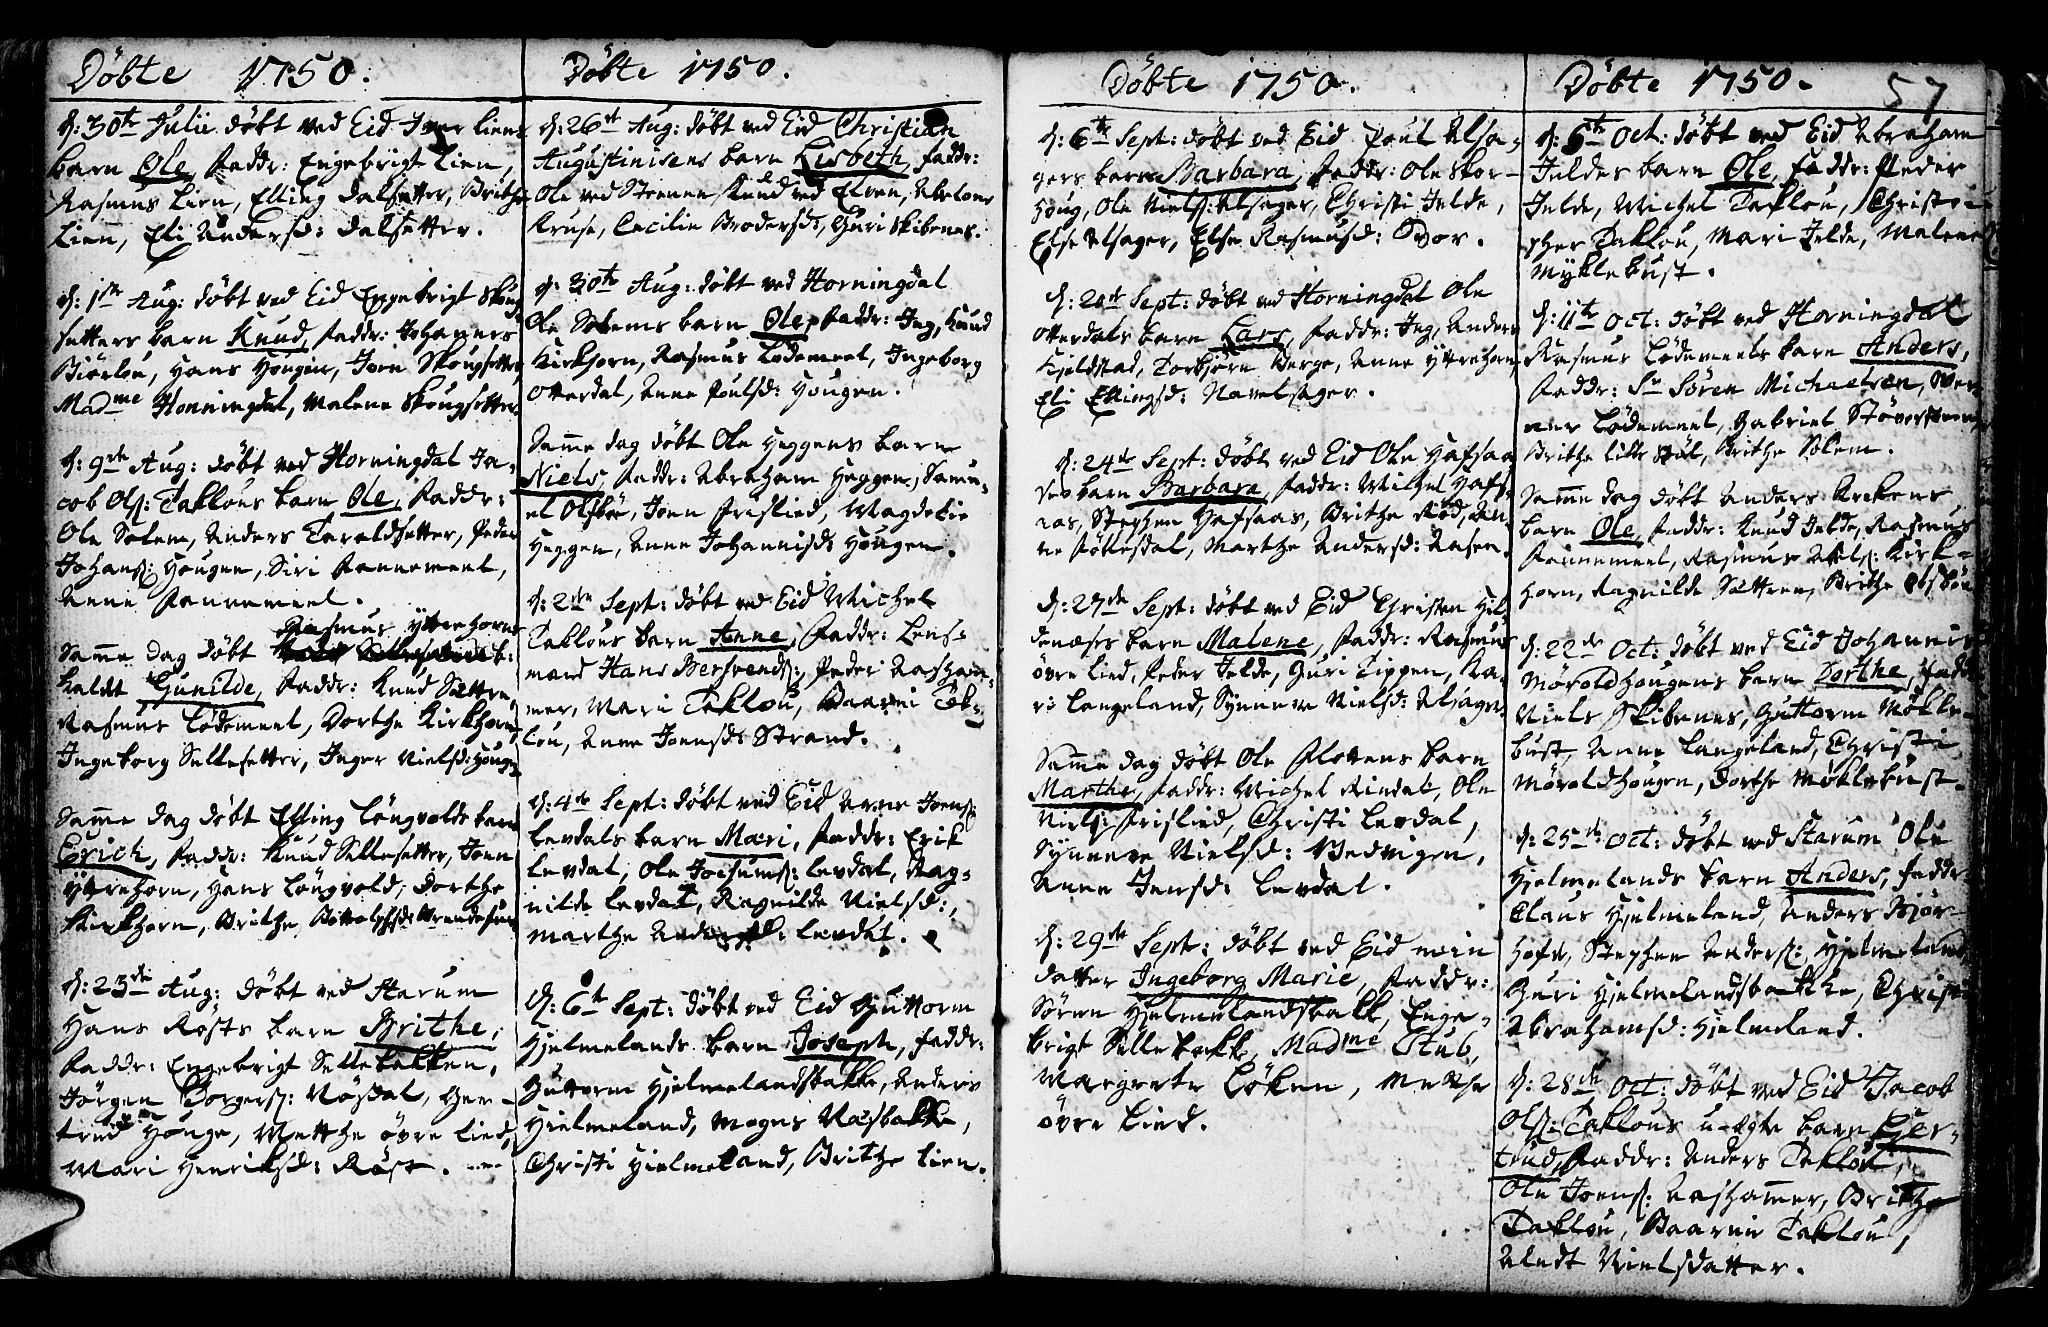 Döbte 1750.
d: 30te Julii döbt ved Eid Iver Liens
barn Ole, Faddr: Engebrigt Lien,
Rasmus Lien, Elling Dalsetter, Brithe
Lien, Eli Andersd: Dalsetter.
d: 1ste Aug: döbt ved Eid Engebrigt Skoug
setters barn Knud, Faddr: Johannes
Biörlou, Hans Hougen, Joen Skougsetter,
Madme Honningdal, Malene Skougsetter
d: 9de Aug: döbt ved Horningdal Ja-
cob Ols: Taklous barn Ole, Faddr:
Ole Solem, Anders Taraldsetter, Peder
Johans: Hougen, Siri Rannemeel,
Anne Rannemeel.
Rasmus Yttrehorns
Samme dag döbt b:
kaldt Gunilde, Faddr: Knud Sættre
Rasmus Lödemeel, Dorthe Kirkhorn,
Ingeborg Sellesetter, Inger Nielsd: Houge
Samme dag döbt Elling Löngvolds barn
Erich, Faddr: Knud Sellesetter, Joen
Yttrehorn, Hans Löngvold, Dorthe
Kirkhorn, Brithe
d: 23de Aug: döbt ved Starum
Hans Rösts barn Brithe,
Faddr: Engebrigt Sellebakken,
Jörgen Borgers: Nösdal, Ger-
trud Houge, Mætthe övre Lied,
Mari Henriksd: Röst.
Döbte 1750.
d: 26st Aug: döbt ved Eid Christian
Augustinusens barn Lisbeth, Faddr:
Ole ved Steenen Knud ved Elven, Abelone
Kruse, Cecilie Brodersd:, Guri Skibenes.
d: 30te Aug: döbt ved Horningdal
Ole Solems barn Ole, Faddr: Ing, Knud
Kirkhorn, Rasmus Lödemeel, Ingeborg
Otterdal, Anne Poulsd: Hougen.
Samme dag döbt Ole Heggens barn
Niels, Faddr: Abraham Heggen, Samu-
el Olsböe, Joen Frislied, Magdelie
Heggen, Anne Johannisd: Hougen.
d: 2den Sept: döbt ved Eid Michel
Taklous barn Anne, Faddr: Lens-
mand Hans Bersvends:, Peder Aasham-
mer, Mari Taklou, Baarni Tak-
lou, Anne Joensd: Strand.
d: 4de Sept: döbt ved Eid Arne Joens:
Levdals barn Mari, Faddr: Erik
Levdal, Ole Joesums: Levdal, Rag-
nilde Levdal, Ragnilde Nielsd:,
Marthe Andersd: Levdal.
d: 6t Sept: döbt ved Eid Guttorm
Hjelmelands barn Joseph, Faddr:
Guttorm Hjelmelandsbakke, Anders
Hjelmeland, Mogns Naasbakke,
Christi Hjelmeland, Brithe Lien.
Döbte 1750.
d: 6te Sept: döbt ved Eid Poul Alsa-
gers barn Barbara, Faddr: Ole Skor-
houg, Ole Niels: Alsager, Christi Jelde,
Else Alsager, Else Rasmusd: Hvor.
d: 20st Sept: döbt ved Horningdal Ole
Otterdals barn Lars, Faddr: Ing, Anders
Hjeldstad, Torbjörn Berge, Anne Yttrehorn
Eli Ellingsd: Navelsager.
d: 24de Sept: döbt ved Eid Ole Hafsaa
ses barn Barbara, Faddr: Michel Hafs-
aas, Stephen Hafsaas, Brithe Röd, An-
ne Föllesdal, Marthe Andersd: Aasen.
d: 27de Sept: döbt ved Eid Christen Hil-
denæses barn Malene, Faddr: Rasmus
övre Lied, Peder Jelde, Guri Tippen, Ka-
ri Langeland, Synneve Nielsd: Alsager.
Samme dag döbt Ole Flottens barn
Marthe, Faddr: Michel Rindal, Ole
Niels: Frislied, Christi Levdal,
Synneve Nielsd: Vedvigen,
Anne Jensd: Levdal.
d: 29de Sept: döbt ved Eid min
datter Ingeborg Marie, Faddr:
Sören Hjelmelandsbakk, Enge-
brigt Sellebakke, Madme Stub,
Margrete Löken, Metthe
övre Lied.
Döbte 1750.
57
d: 5te Oct: döbt ved Eid Abraham
Jeldes barn Ole, Faddr: Peder
Jelde, Michel Taklou, Christo-
pher Taklou, Mari Jelde, Malene
Myklebust.
d: 11te Oct: döbt ved Horningdal
Rasmus Lödemeels barn Anders,
Faddr: Sr Sören Michaelsen, Wer-
ner Lödemeel, Gabriel
Brithe Lille Stöl, Brithe Solem.
Samme dag döbt Anders
barn Ole, Faddr: Knud Jelde, Rasmus
Rannemeel, Rasmus Abels: Kirk-
horn, Ragnilde Sættren, Brithe Olsböe
d: 22de Oct: döbt ved Eid Johannis
Möroldhougens barn Dorthe, Fadd:
Niels Skibenes, Guttorm Mökle-
bust, Anne Langeland, Christi
Möroldhougen, Dorthe Möklebust.
d: 25de Oct: döbt ved Starum Ole
Hjelmelands barn Anders, Faddr:
Claus Hjelmeland, Anders Björ-
hofn, Stephen Anders: Hjelmeland,
Guri Hjelmelandsbakke, Christi
Abrahamsd: Hjelmeland.
d: 28de Oct: döbt ved Eid Jacob
Ols: Taklous u-ægte barn Gjer-
trud, Faddr: Anders Taklou,
Ole Joens: Aashammer, Brithe
Taklou, Baarni Taklou,
Alndt Nielsdatter.